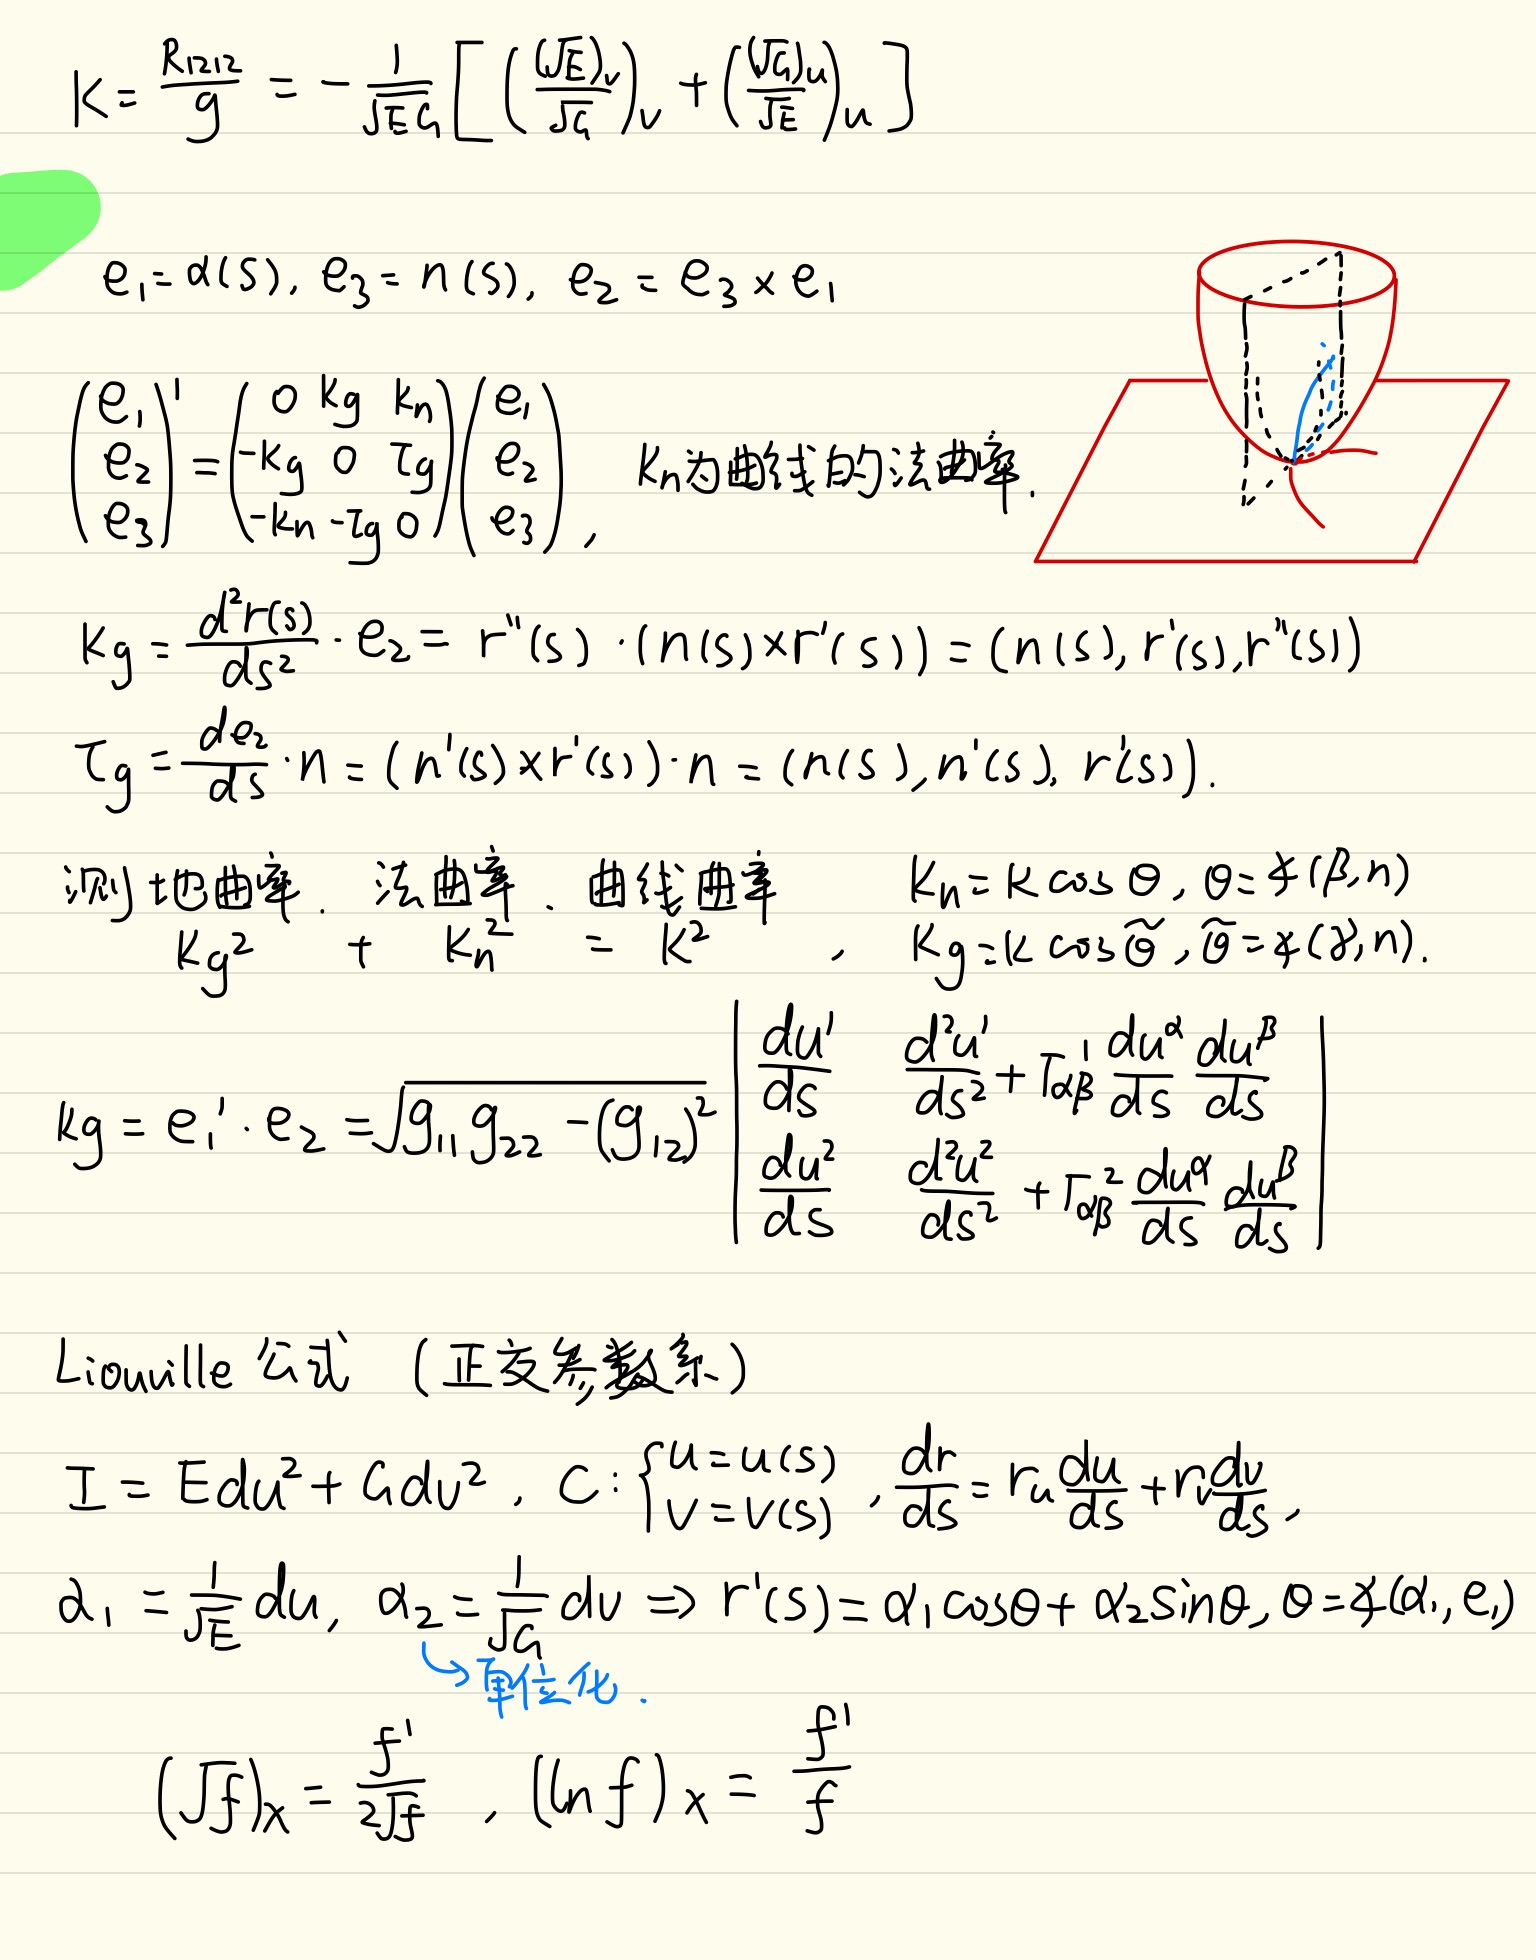 K = R₁₂₁₂/g = -1/√EG [ ((√E)ᵥ/√G)ᵥ + ((√G)ᵤ/√E)ᵤ ]
e₁ = α(s), e₃ = n(s), e₂ = e₃ × e₁
(e₁ e₂ e₃)' = (0 kg kn; -kg 0 τg; -kn -τg 0)(e₁ e₂ e₃), kn为曲线的法曲率.
kg = d²r(s)/ds² · e₂ = r''(s) · (n(s)×r'(s)) = (n(s), r'(s), r''(s))
τg = de₂/ds · n = (n'(s)×r'(s)) · n = (n(s), n'(s), r'(s)).
测地曲率. 法曲率. 曲线曲率 kn = k cosθ, θ = ∡(β, n)
kg² + kn² = k², kg = k cosθ̃, θ̃ = ∡(γ, n).
kg = e₁' · e₂ = √g₁₁g₂₂ - (g₁₂)² | du¹/ds d²u¹/ds² + Γαβ¹ duᵅ/ds duᵝ/ds ; du²/ds d²u²/ds² + Γαβ² duᵅ/ds duᵝ/ds |
Liouville 公式 (正交参数系)
I = Edu² + Gdv², C: { u = u(s) v = v(s), dr/ds = rᵤ du/ds + rᵥ dv/ds,
α₁ = 1/√E du, α₂ = 1/√G dv ⇒ r'(s) = α₁cosθ + α₂sinθ, θ = ∡(α₁, e₁)
单位化.
(√f)ₓ = f'/2√f, (ln f)ₓ = f'/f